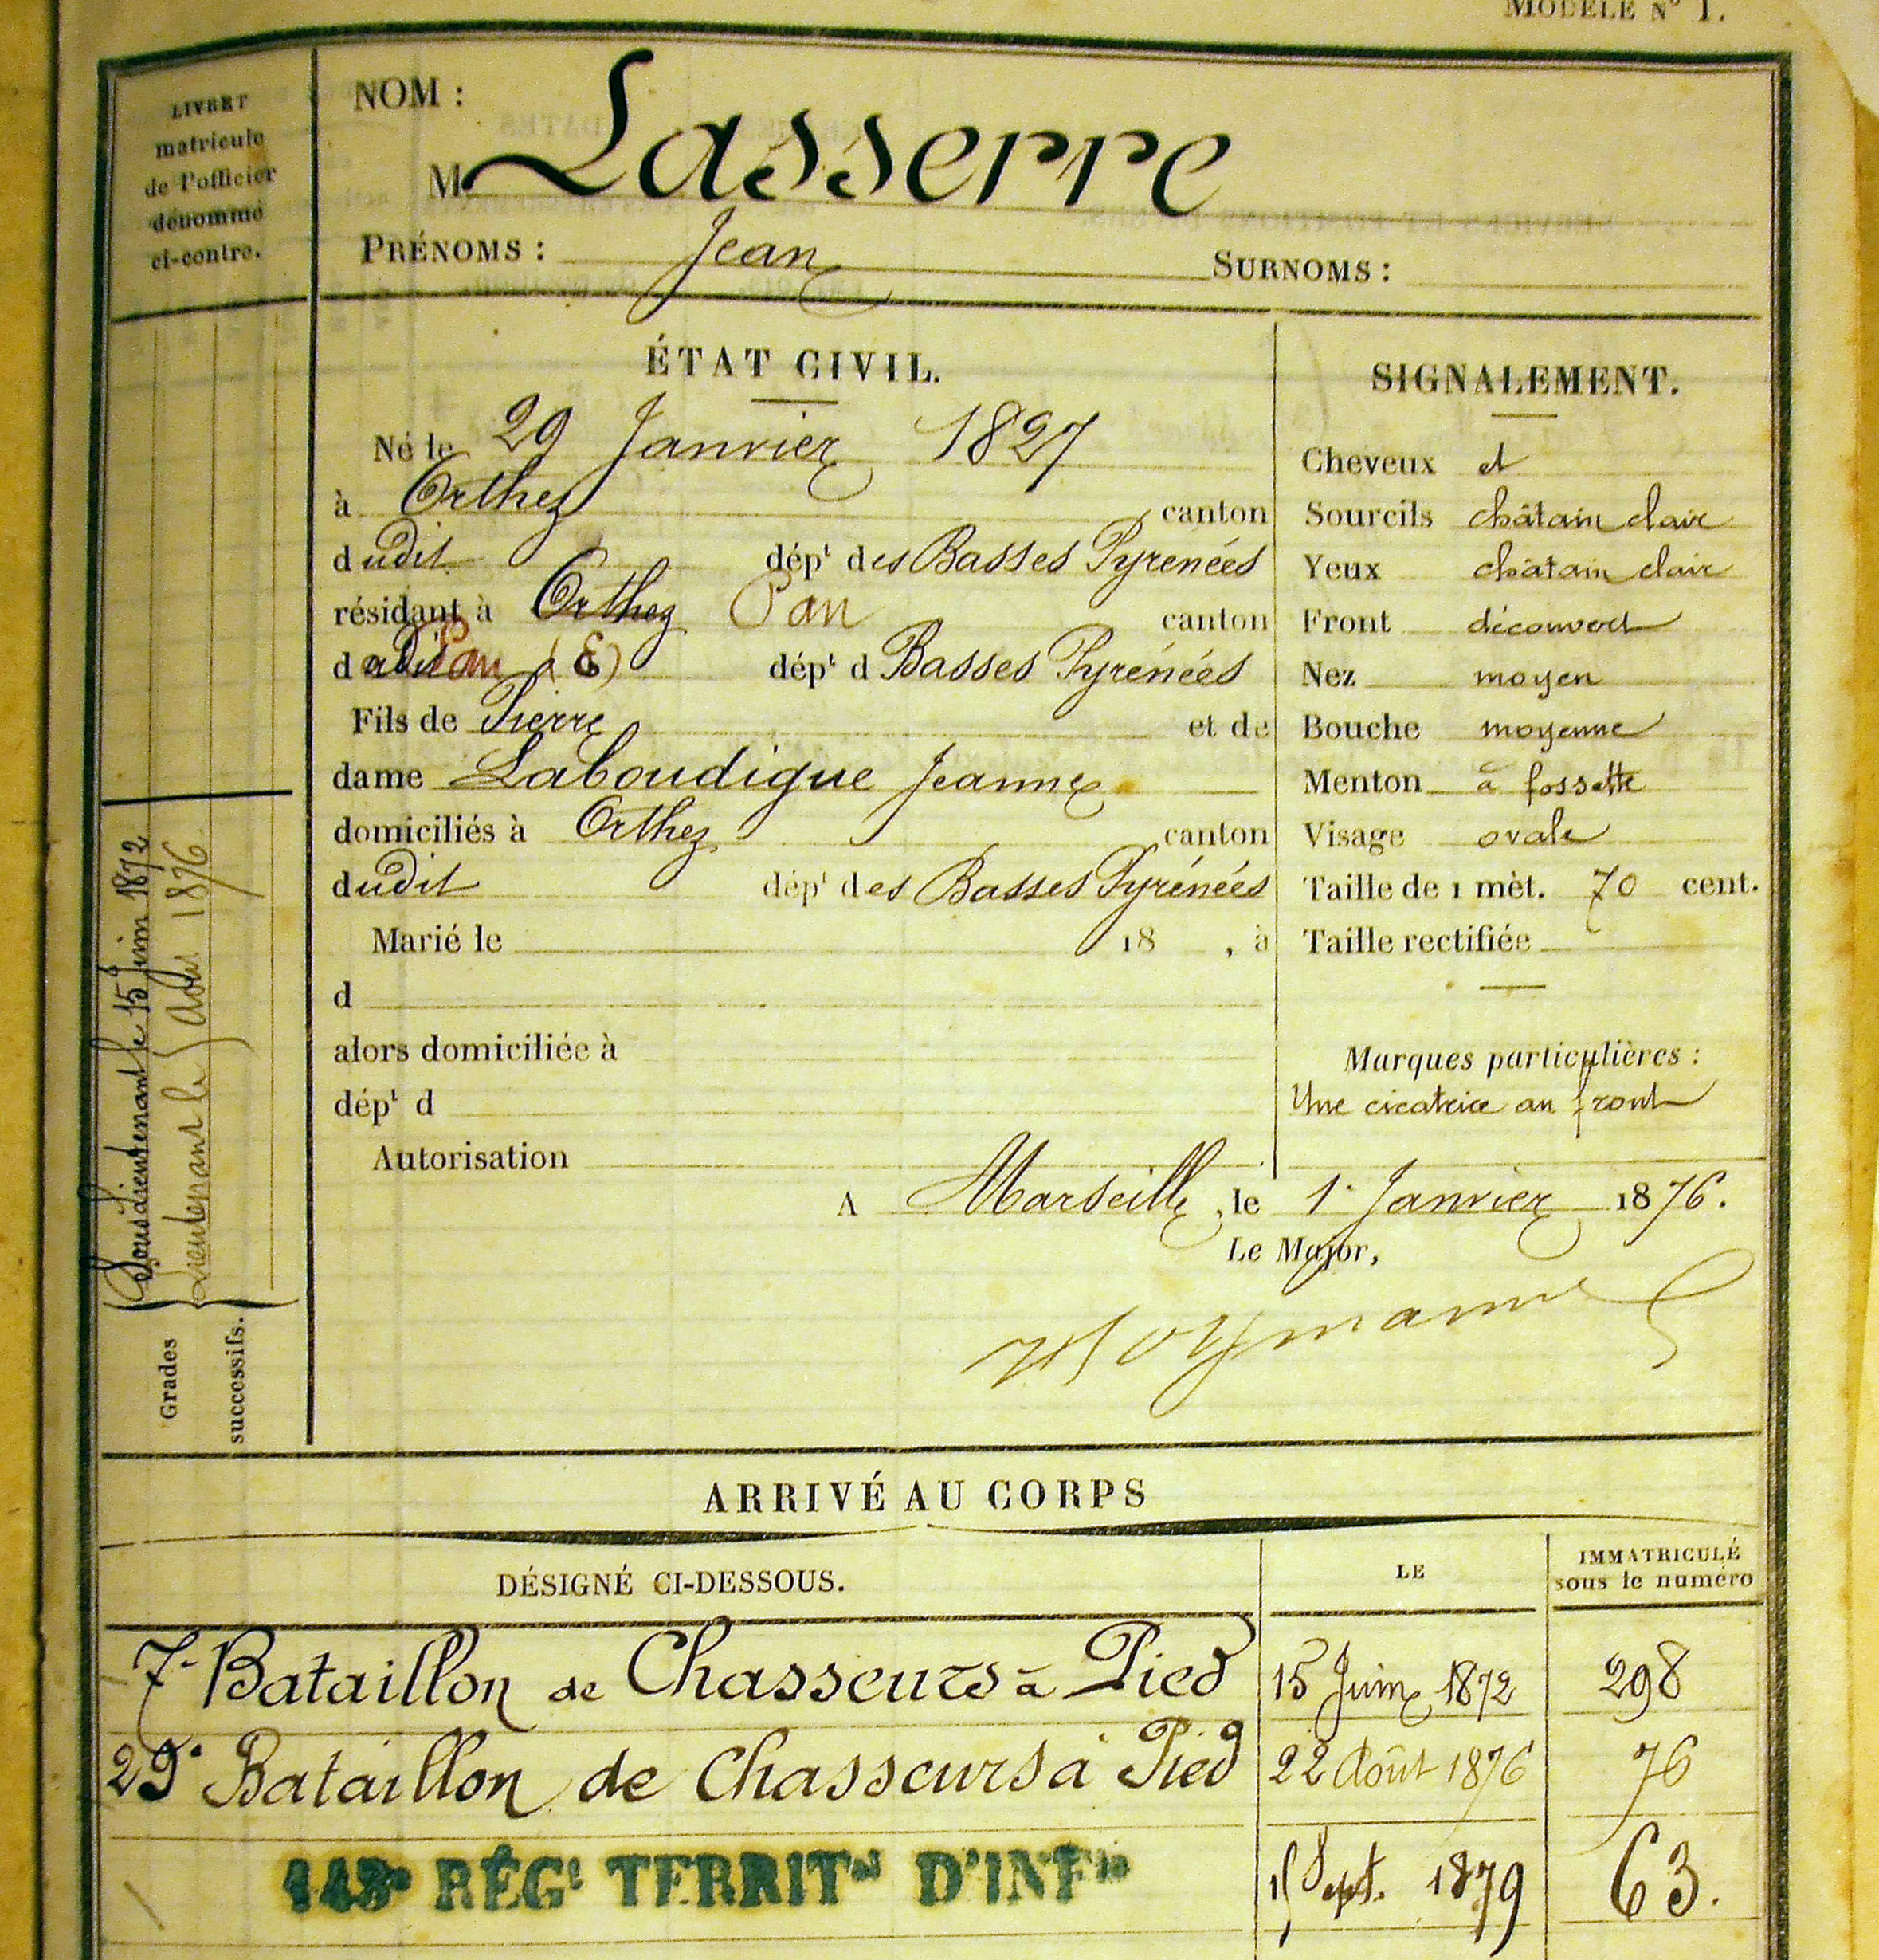 MODÈLE N° 1.
LIVRET
matricule
de l'officier
dénommé
ci-contre.
NOM :
M Lasserre
PRÉNOMS : Jean SURNOMS :
ÉTAT CIVIL.
Né le 29 Janvier 1827
à Orthez canton
dudit dépt des Basses Pyrenées
résidant à Orthez Pau canton
dudit Pau (E) dépt d Basses Pyrénées
Fils de Pierre et de
dame Laboudigue Jeanne
domiciliés à Orthez canton
dudit dépt des Basses Pyrénées
Marié le 18 , à
d
alors domiciliée à
dépt d
Autorisation
SIGNALEMENT.
Cheveux et
Sourcils châtain clair
Yeux châtain clair
Front découvert
Nez moyen
Bouche moyenne
Menton à fossette
Visage ovale
Taille de 1 mèt. 70 cent.
Taille rectifiée
Marques particulières :
Une cicatrice au front
A Marseille, le 1r Janvier 1876.
Le Major,
Grades
successifs.
Sous Lieutenant le 15 Juin 1872
Lieutenant le Août 1876
ARRIVÉ AU CORPS
DÉSIGNÉ CI-DESSOUS. LE IMMATRICULÉ
sous le numéro
7e Bataillon de Chasseurs à Pied 15 Juin 1872 298
29e Bataillon de Chasseurs à Pied 22 Août 1876 76
143e RÉGt TERRITal D'INFie Sept. 1879 63.